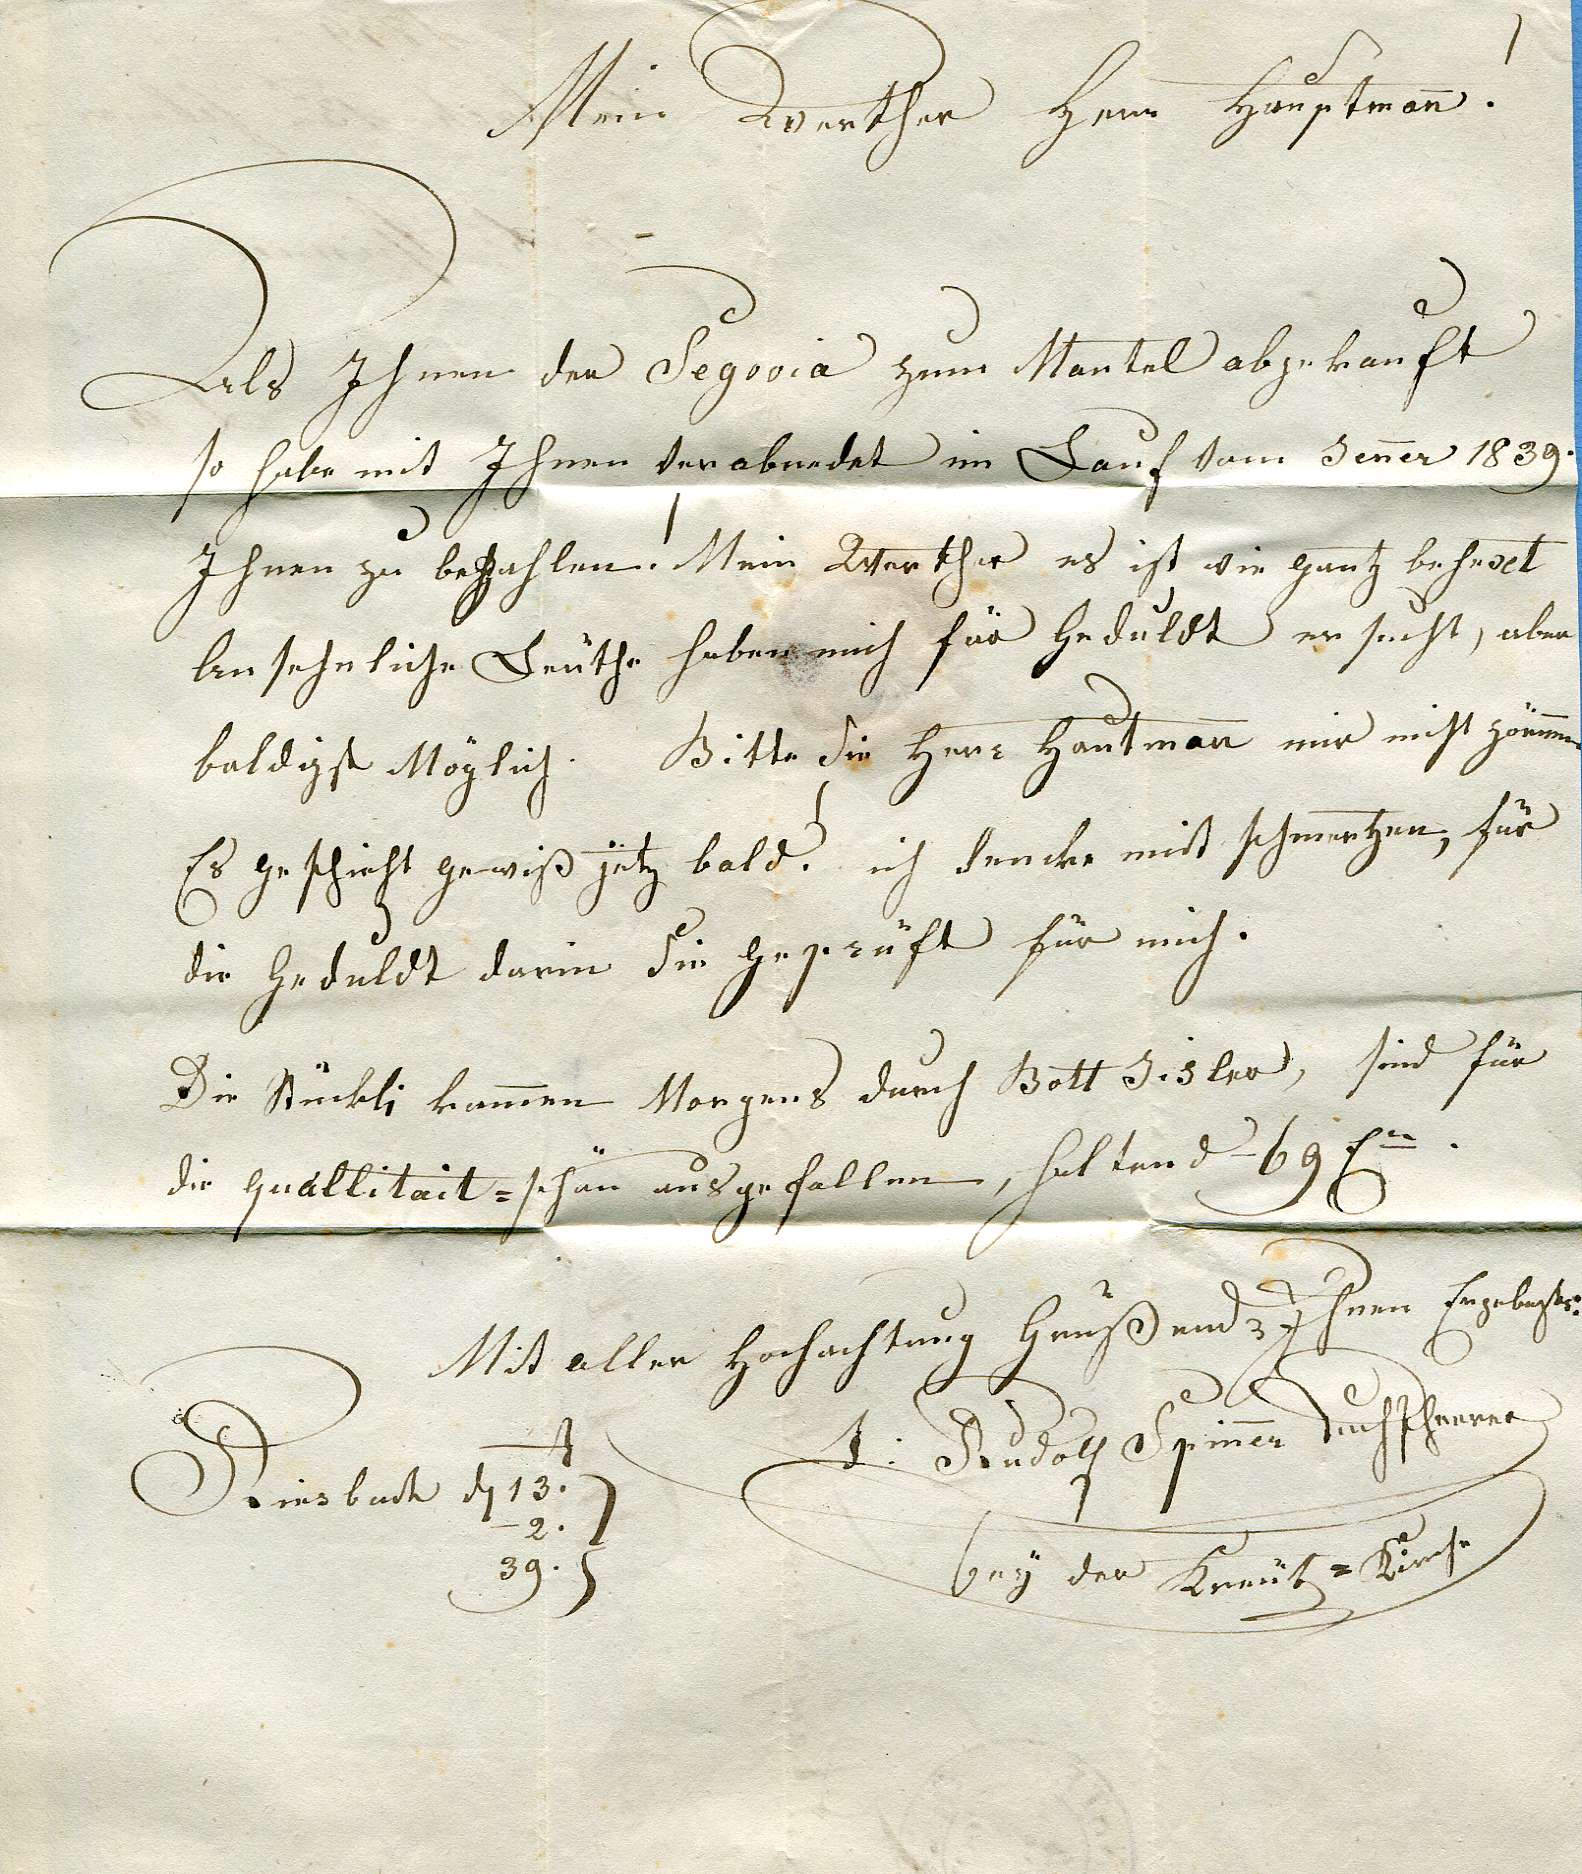 Mein Werther Herr Hauptmann!
Als Ihnen der Segovia zum Mantel abgekauft
so habe mit Ihnen verabredet im Lauf vom Jenner 1839.
Ihnen zu bezahlen! Mein Werther es ist wie gantz behext
Ansehnliche Leüthe haben mich für Geduldt ersucht, aber
baldigst Möglich. Bitte Sie Herr Hautmann mir nicht zörnnen
Es geschieht gewiß jetz bald! ich dencke mit schmertzen, für
die Geduldt darin Sie geprüft für mich.
Die Stückli kommen Morgens durch Bott Zisler, sind für
die quallitait=schön ausgefallen, haltend 69 En.
Mit aller Hochachtung Grüßend Ihnen Ergebenster
J: Rudolf Spinner Tuchscheerer
bey der Kreütz=Kirche
Riesbach d 13.t
2.
39.